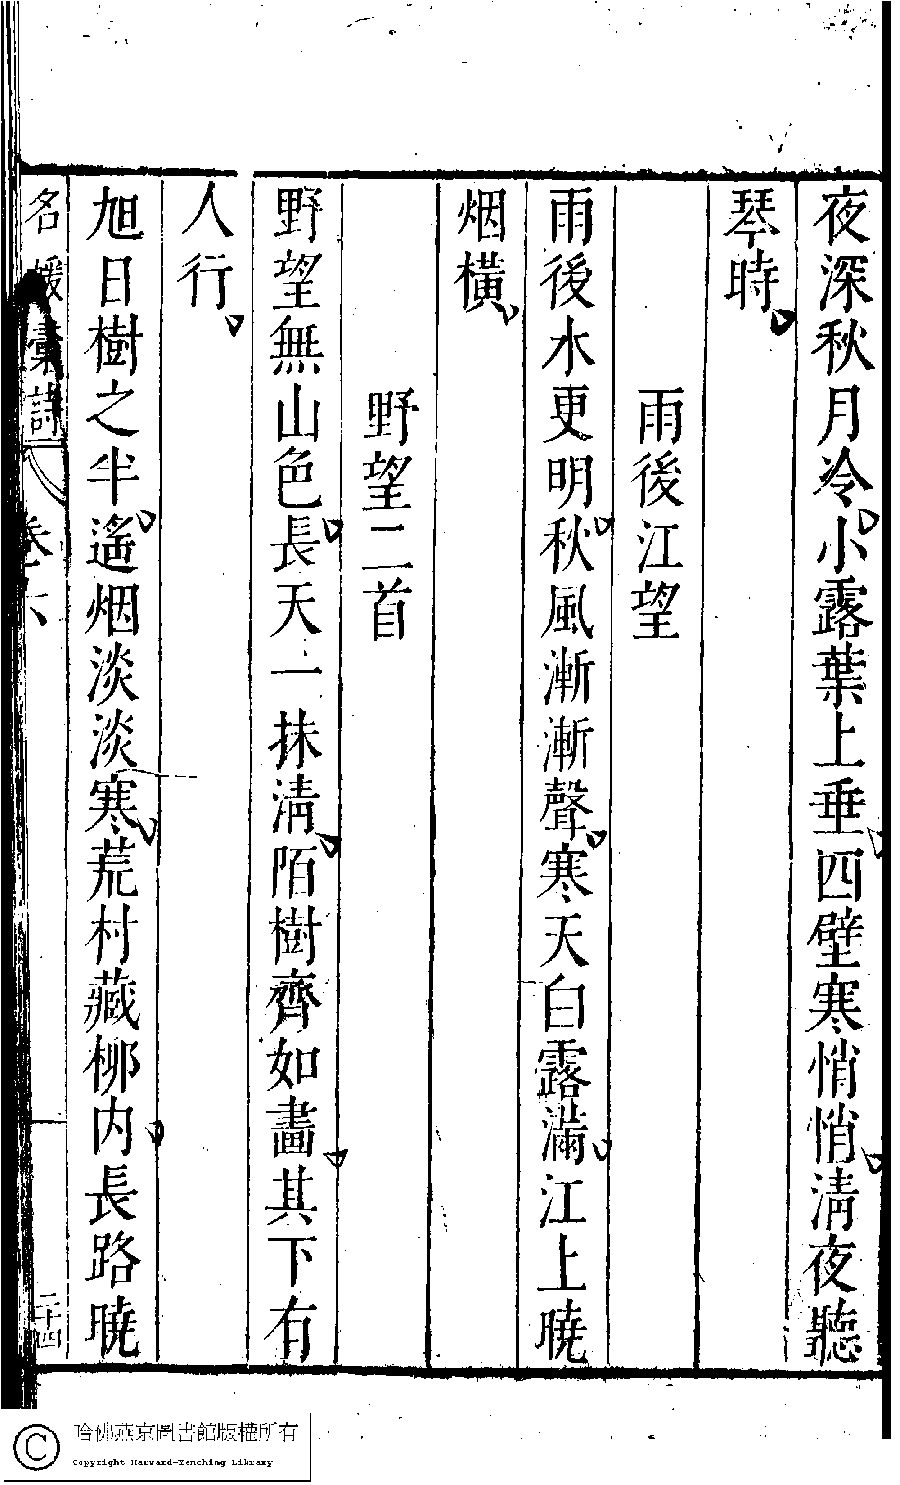 夜深秋月冷小露葉上垂四壁寒悄悄清夜聽
琴時
雨後江望
雨後水更明秋風漸漸聲寒天白露滿江上曉
烟橫
野望二首
野望無山色長天一抹清陌樹齊如畵其下有
人行
旭日樹之半遙烟淡淡寒荒村藏柳内長路曉
名媛彙詩 卷六 二十四
哈佛燕京圖書館版權所有
Copyright Harvard-Yenching Library